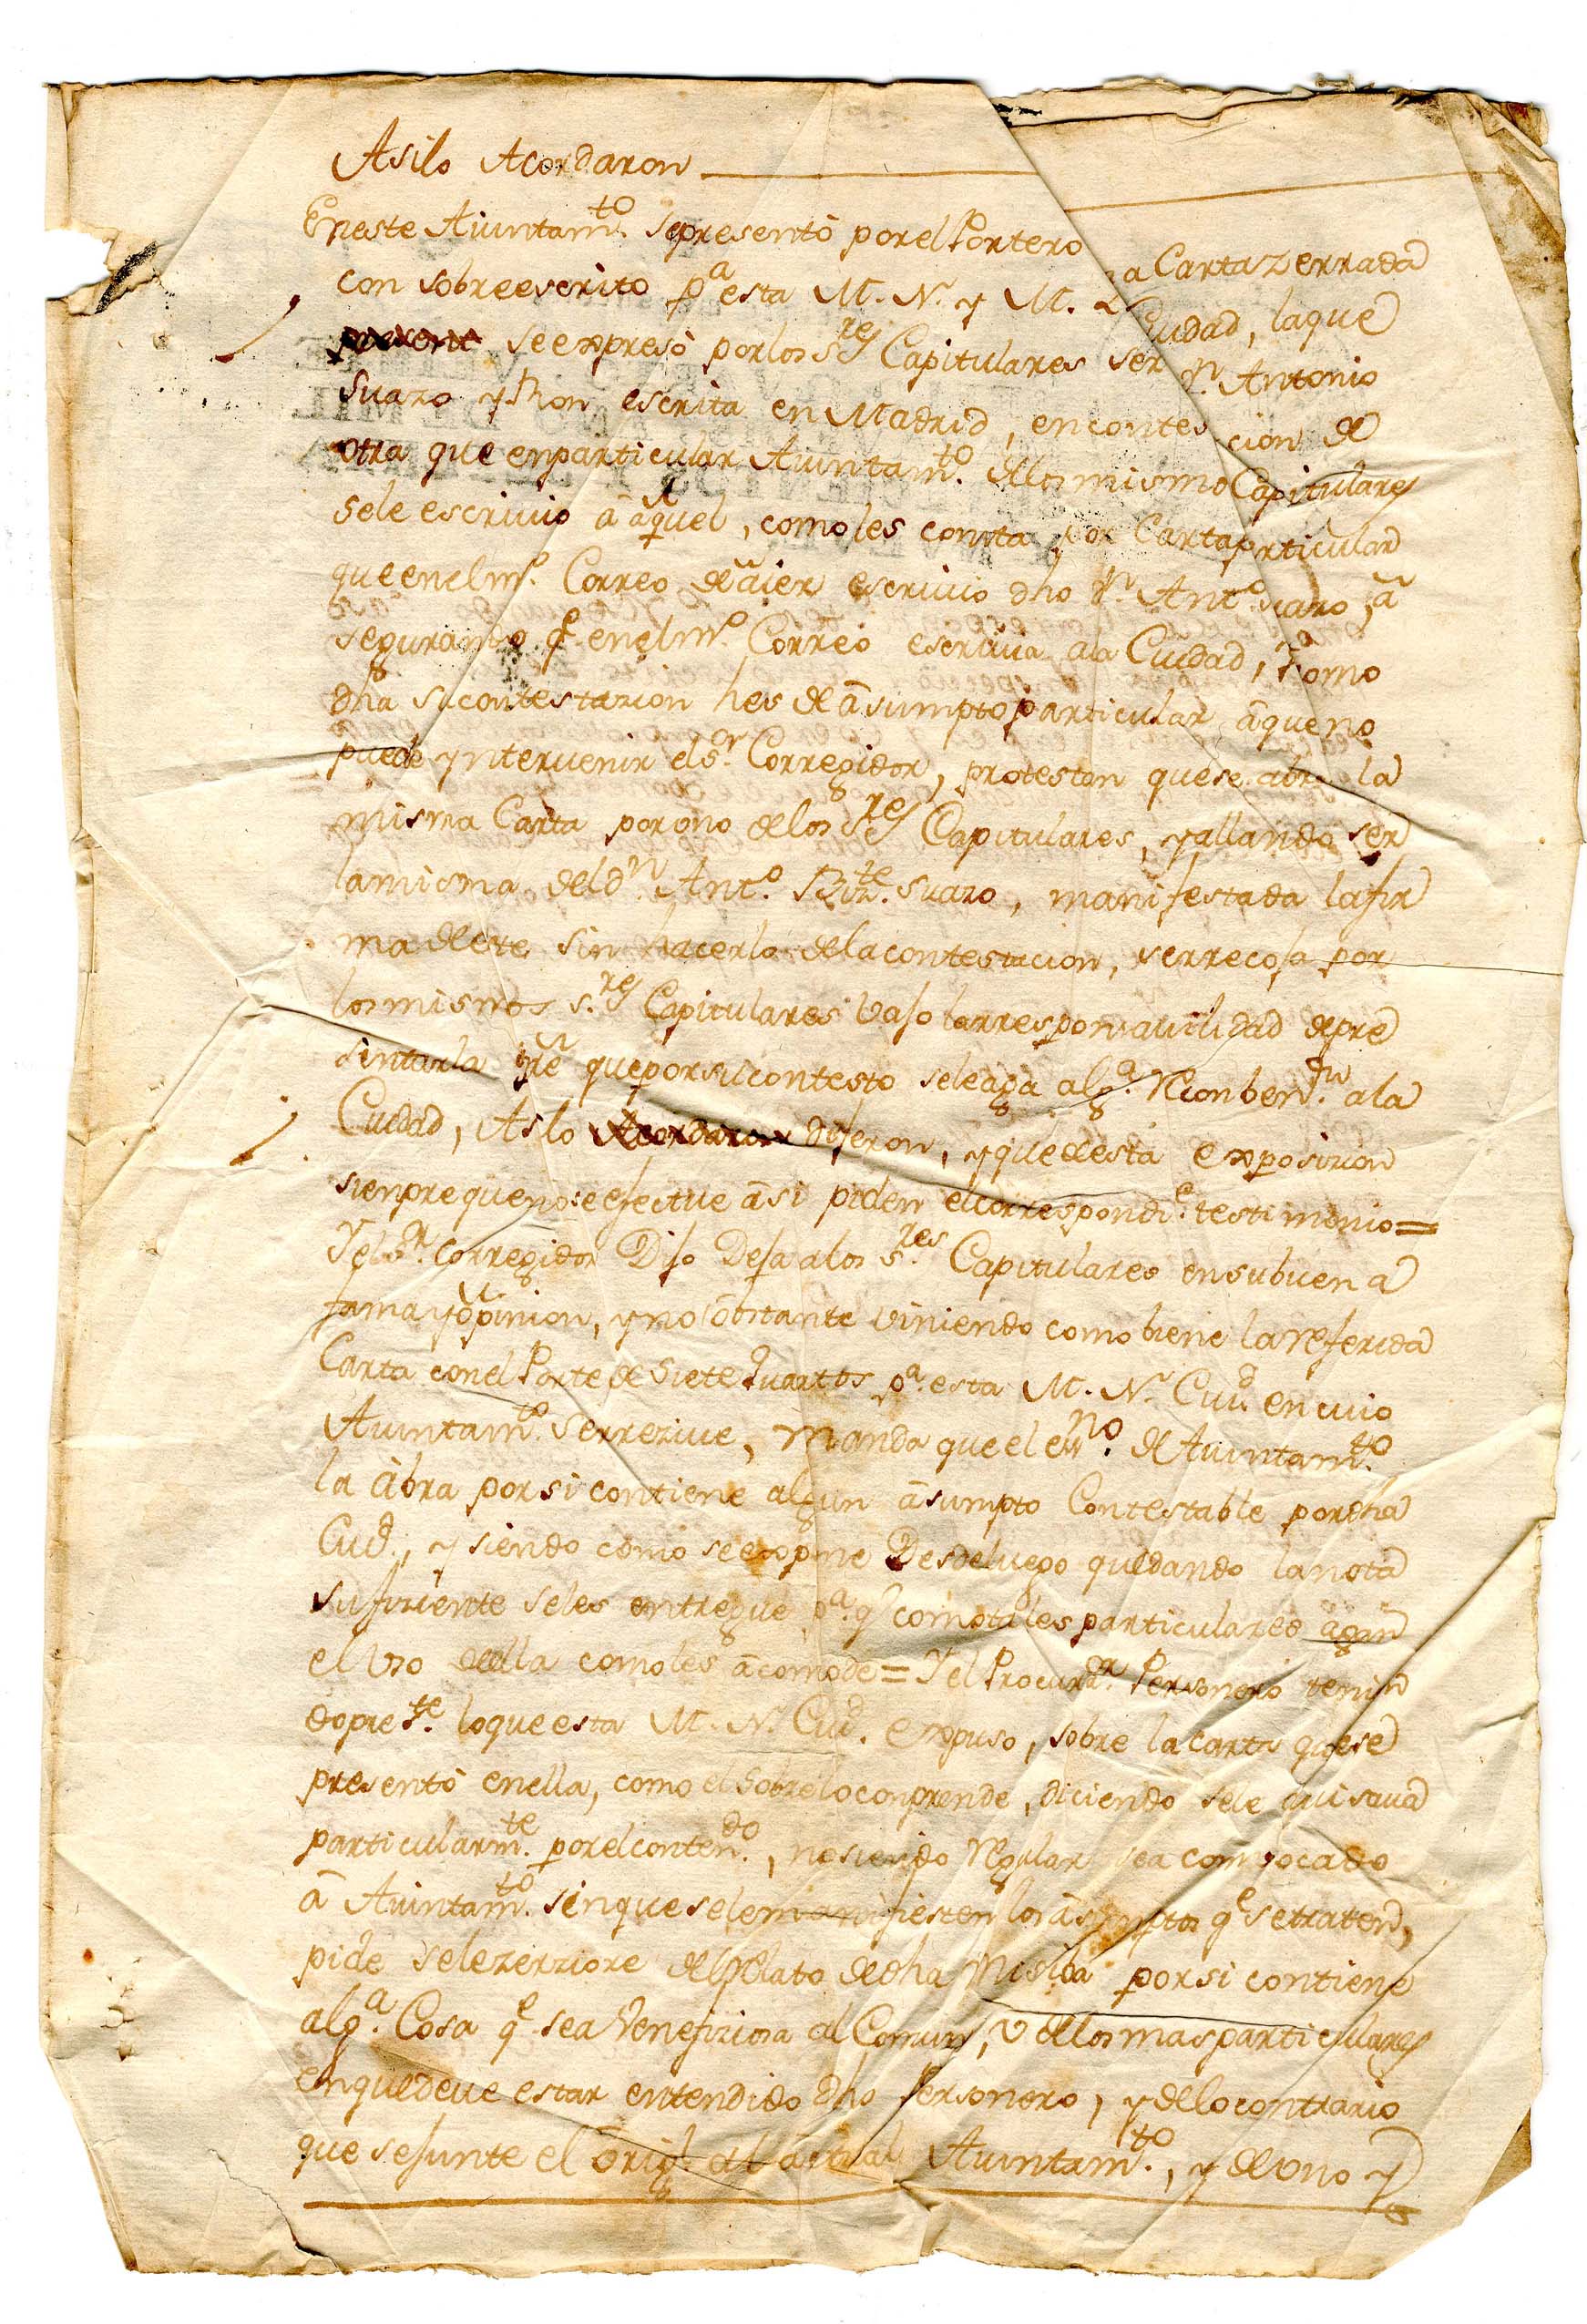 Asilo Acordaron
Eneste Aiuntam.to sepresentò porel Portero a Carta zerrada
con sobreescrito p.a esta M. N. y M. L Ciudad, laque
seexpresò porlos s.res Capitulares ser D.n Antonio
Suazo y Ron escrita en Madrid, encontes cion de
otra que enparticular Aiuntam.to delos mismo Capitulares
sele escriuio â âquel, comoles consta por Carta particular
queenelm.o Correo de âier escriuio dho D.n Ant.o suazo, â
segurando q.e enelm.o Correo escriuia ala Ciudad, Como
dha sucontestazion hes de âsumpto particular âqueno
puede ynteruenir els.or Corregidor, protestan quese abra la
misma Carta poruno delos s.res Capitulares, yallando ser
lamisma deld.n Ant.o Suazo, manifestada lafir
ma deeste sin hacerlo delacontestacion, serrecoja por
losmismos s.res Capitulares vajo larresponsauilidad depre
sentarla que queporsucontesto seleaga alg.a ala
Ciudad, Asilo Acordaron dijeron, yquedesta exposizion
sienprequenoseefectue âsi piden elcorrespondi.e testimonio =
Y els.r Corregidor Dijo Deja alos s.res Capitulares ensubuena
fama yôpinion, yno ôbstante viniendo como biene lareferida
Carta conel Porte de Siete quartos p.a esta M. N. Ciud. encuio
Aiuntam.to serreziue, Manda que el ess.no de Aiuntam.to
la âbra porsi contiene algun âsumpto Contestable pordha
Ciud., y siendo como seexpone Desdeluego quedando lanota
sufiziente seles entregue p.a q.e comotales particulares âgan
el vso deella comoles âcomode = Y el Procurd.r Personero tenien
dopres.te loqueesta M. N. Ciud. expuso, sobre lacarta quese
presentò enella, como el Sobreloconprende, diciendo sele auisaua
particularm.te porelconten.do, nosiendo Regular sea combocado
â Aiuntam.to sinquesele manifiesten los âsumptos q.e setraten,
pide selezerziore delRelato dedha Misiba porsi contiene
alg.a Cosa q.e sea Venefiziosa al Comun, v delosmasparticulares
enquedeue estar entendido dho Personero, y delocontrario
que sejunte el ôrig.l al âctual Aiuntam.to, y deuno y